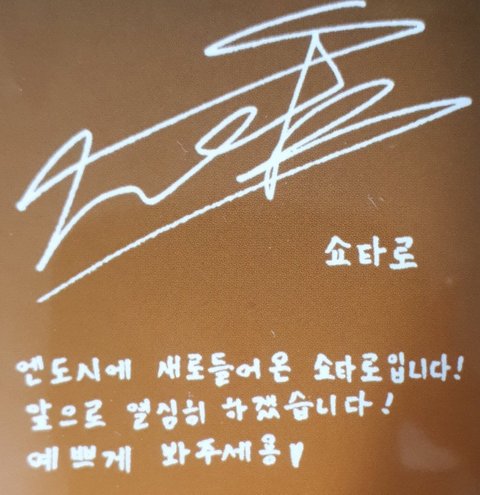 쇼타로
엔도시에 새로들어온 쇼타로입니다!
앞으로 열심히 하겠습니다!
예쁘게 봐주세용♥